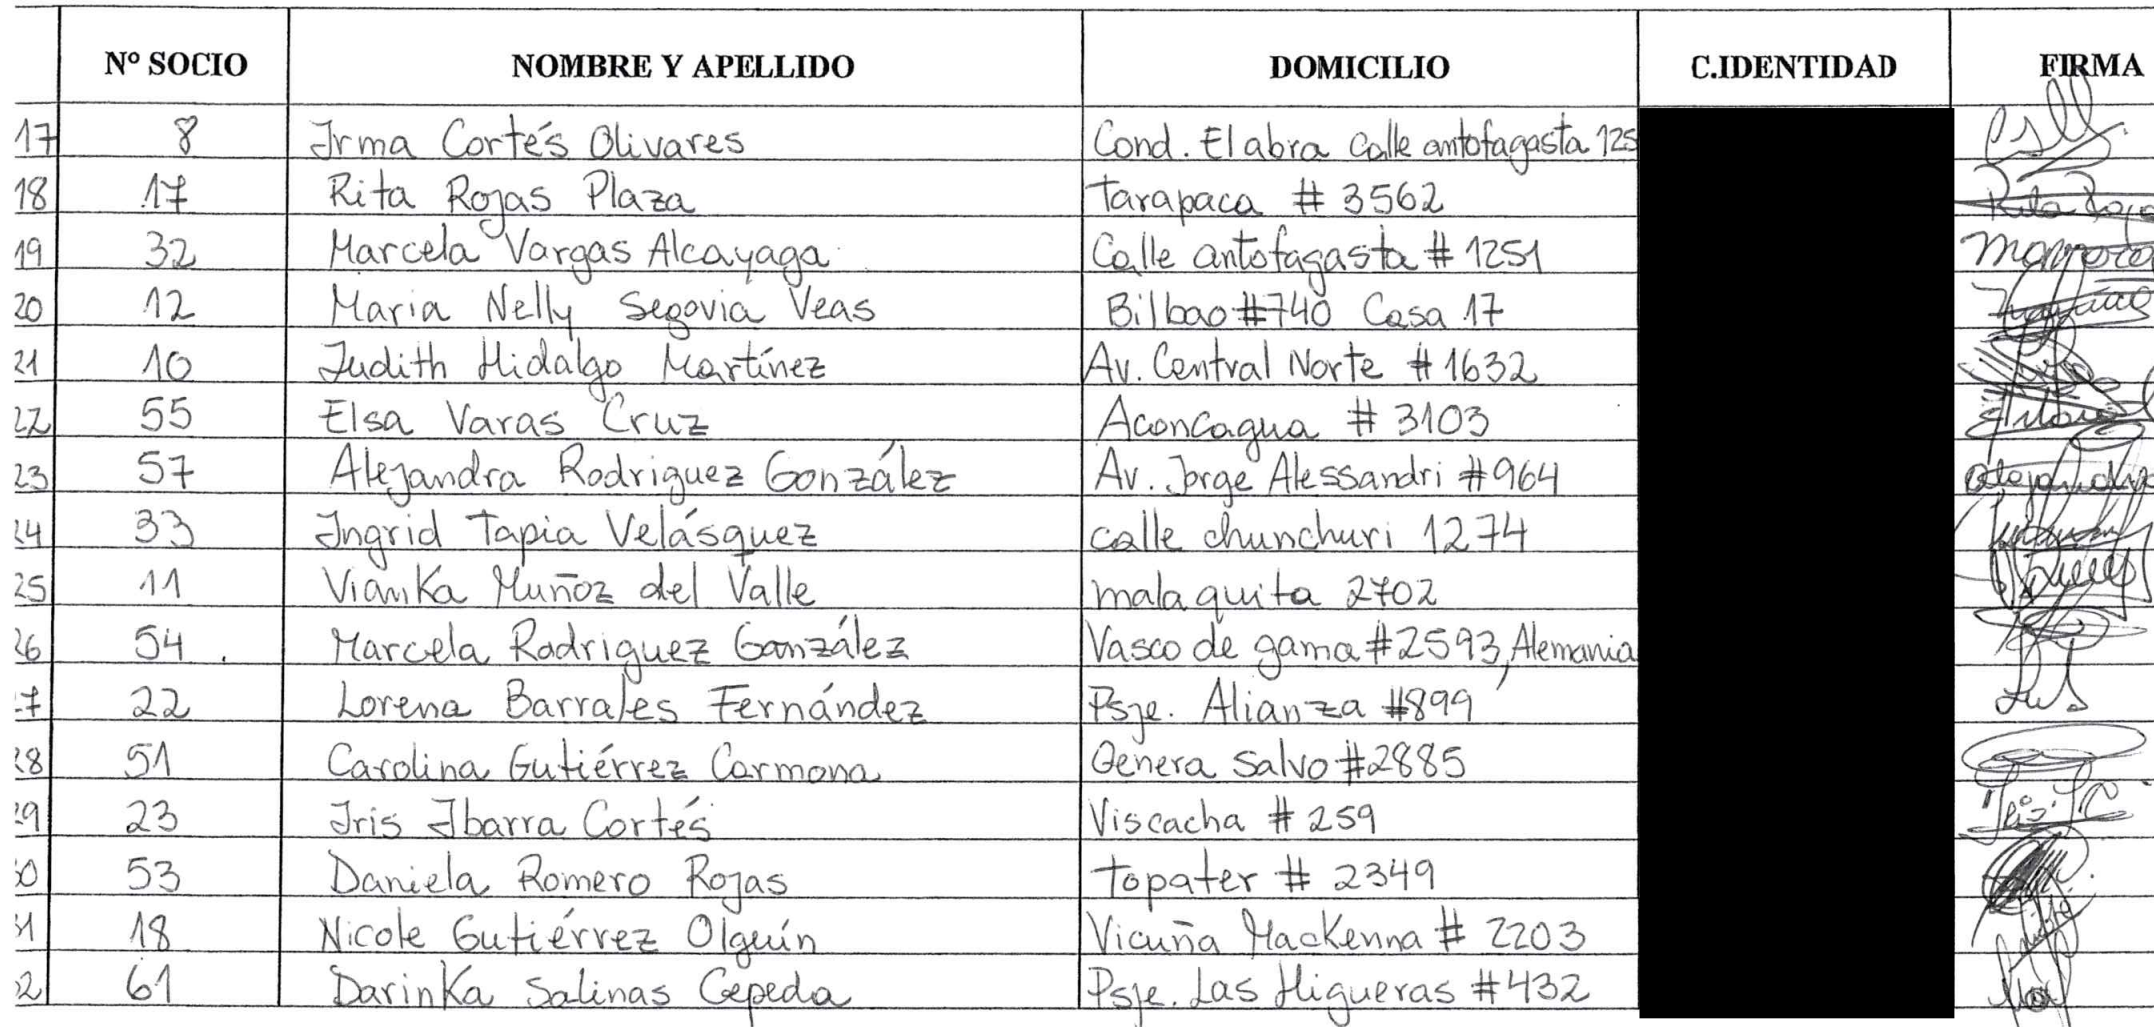 N° SOCIO NOMBRE Y APELLIDO DOMICILIO C.IDENTIDAD FIRMA
17 8 Irma Cortés Olivares Cond. El abra calle antofagasta 125
18 17 Rita Rojas Plaza tarapaca # 3562 Rita Roja
19 32 Marcela Vargas Alcayaga Calle antofagasta # 1251
20 12 Maria Nelly Segovia Veas Bilbao #740 Casa 17
21 10 Judith Hidalgo Martínez Av. Central Norte # 1632
22 55 Elsa Varas Cruz Aconcagua # 3103
23 57 Alejandra Rodriguez González Av. Jorge Alessandri #964
24 33 Ingrid Tapia Velásquez calle chunchuri 1274
25 11 Vianka Muñoz del Valle malaquita 2702
26 54 Marcela Rodriguez González Vasco de gama #2593, Alemania
7 22 Lorena Barrales Fernández Psje. Alianza #899
28 51 Carolina Gutiérrez Carmona Genera Salvo #2885
29 23 Iris Ibarra Cortés Viscacha # 259
0 53 Daniela Romero Rojas topater # 2349
1 18 Nicole Gutiérrez Olguín Vicuña Mackenna # 2203
2 61 Darinka Salinas Cepeda Psje. Las Higueras #432